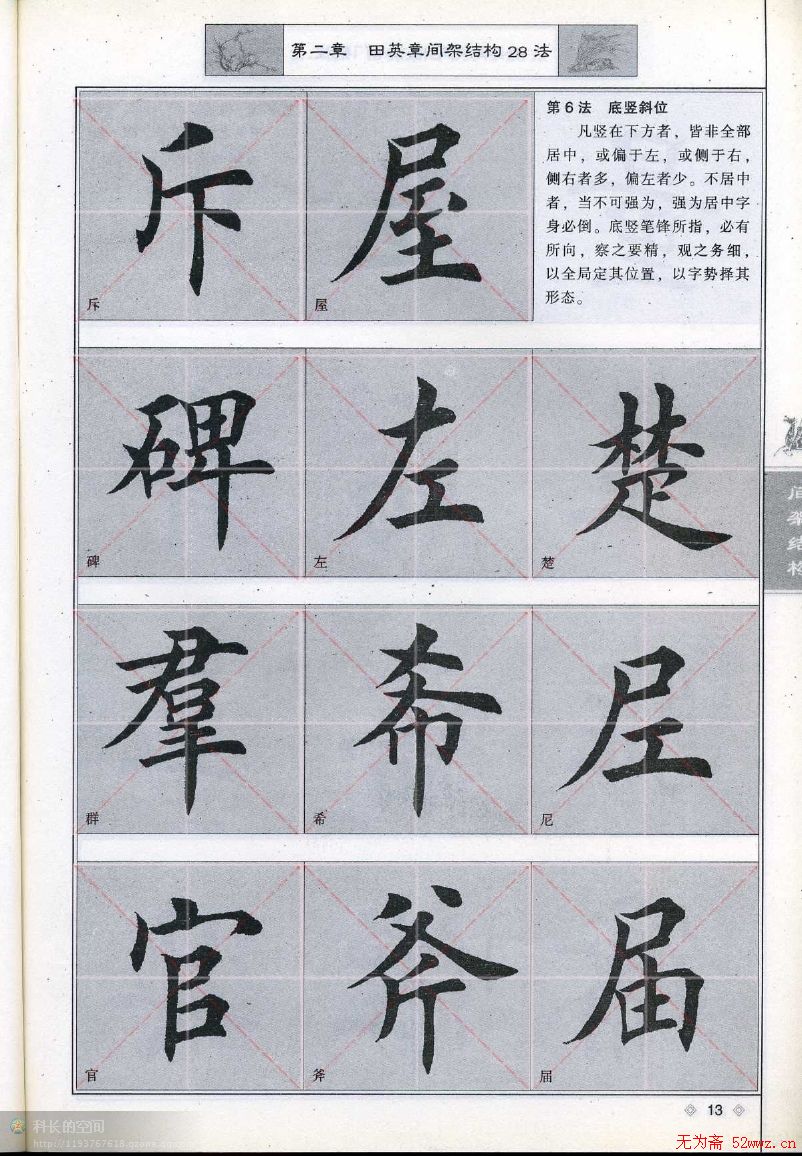 第二章 田英章间架结构28法
第6法 底竖斜位
凡竖在下方者，皆非全部
居中，或偏于左，或侧于右，
侧右者多，偏左者少。不居中
者，当不可强为，强为居中字
身必倒。底竖笔锋所指，必有
所向，察之要精，观之务细，
以全局定其位置，以字势择其
形态。
斥 屋
斥 屋
碑 左 楚
碑 左 楚
间架结构
羣 希 𡰱
群 希 尼
官 斧 届
官 斧 届
13
科长的空间
无为斋 52wwz.cn